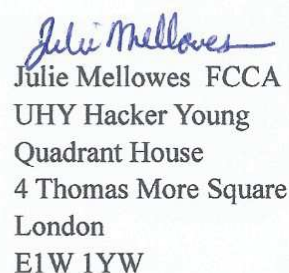 Julie Mellowes
Julie Mellowes FCCA
UHY Hacker Young
Quadrant House
4 Thomas More Square
London
E1W 1YW